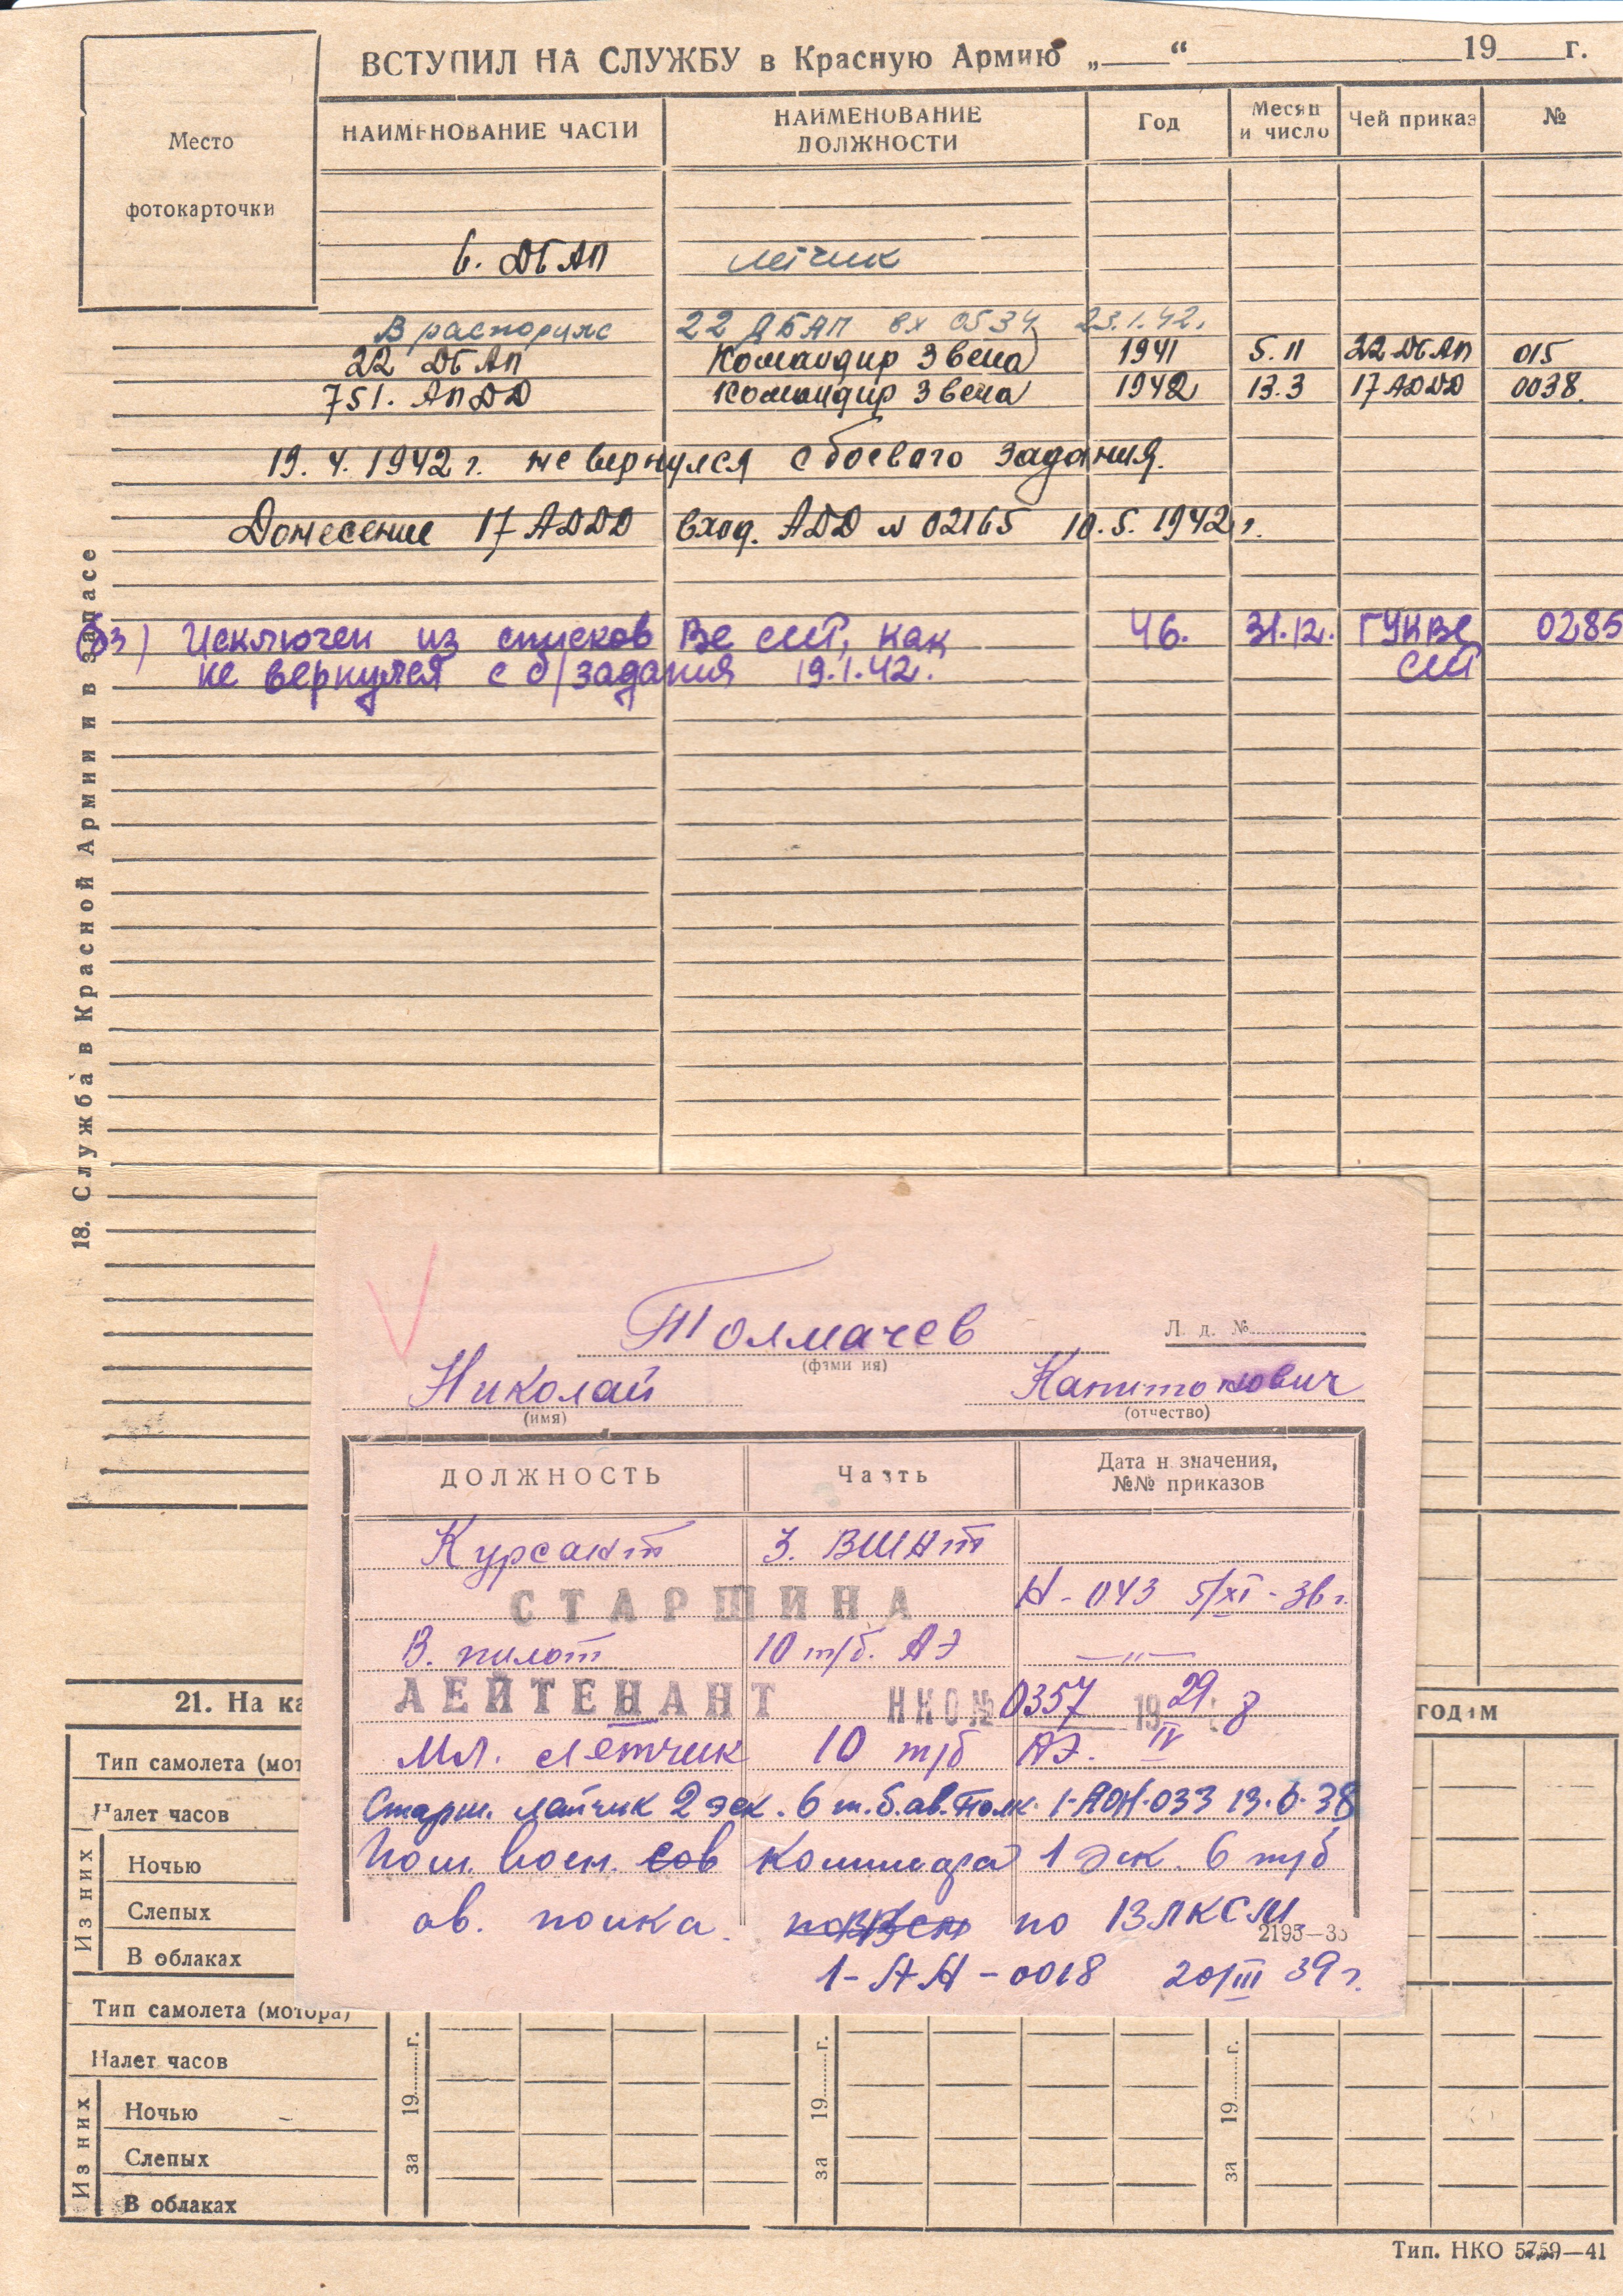 ВСТУПИЛ НА СЛУЖБУ в Красную Армию „____“ 19____г.
Место
фотокарточки
НАИМЕНОВАНИЕ ЧАСТИ НАИМЕНОВАНИЕ ДОЛЖНОСТИ Год Месяц и число Чей приказ №
6. ДБАП летчик
В распоряж 22 ДБАП вх 0534 23.1.42.
22 ДБАП Командир Звена 1941 5.11 22 ДБАП 015
751. АПДД Командир Звена 1942 13.3 17 АДДД 0038.
19. 4. 1942 г. не вернулся с боевого задания.
Донесение 17 АДДД вход. АДД № 02165 10. 5. 1942 г.
Исключен из списков ВС СМТ, как 46. 31.12. ГУКВС 0285
не вернулся с б/задания 19.1.42. СМТ
18. Служба в Красной Армии и в запасе
Толмачев Л. д. №
(фамилия)
Николай Капитонович
(имя) (отчество)
ДОЛЖНОСТЬ Часть Дата назначения,
№№ приказов
Курсант 3. ВШАТ
СТАРШИНА Н-043 5/XI-36 г.
В. пилот 10 т/б. АЭ —"—
ЛЕЙТЕНАНТ НКО № 0357 19 29 IV 8
Мл. летчик 10 т/б АЭ.
Старш. летчик 2 эск. 6 т.б.ав.полк. 1-АОН-033 13.6.38
Пом. воен. сов комиссара 1 эск. 6 т/б
ав. полка. по ВЛКСМ
2195—35
1-АН-0018 20/III 39 г.
21. На ка
годам
Тип самолета (мот
Налет часов
Из них
Ночью
Слепых
В облаках
Тип самолета (мотора)
Налет часов
Из них
Ночью
Слепых
В облаках
за 19 г.
за 19 г.
за 19 г.
Тип. НКО 5759—41